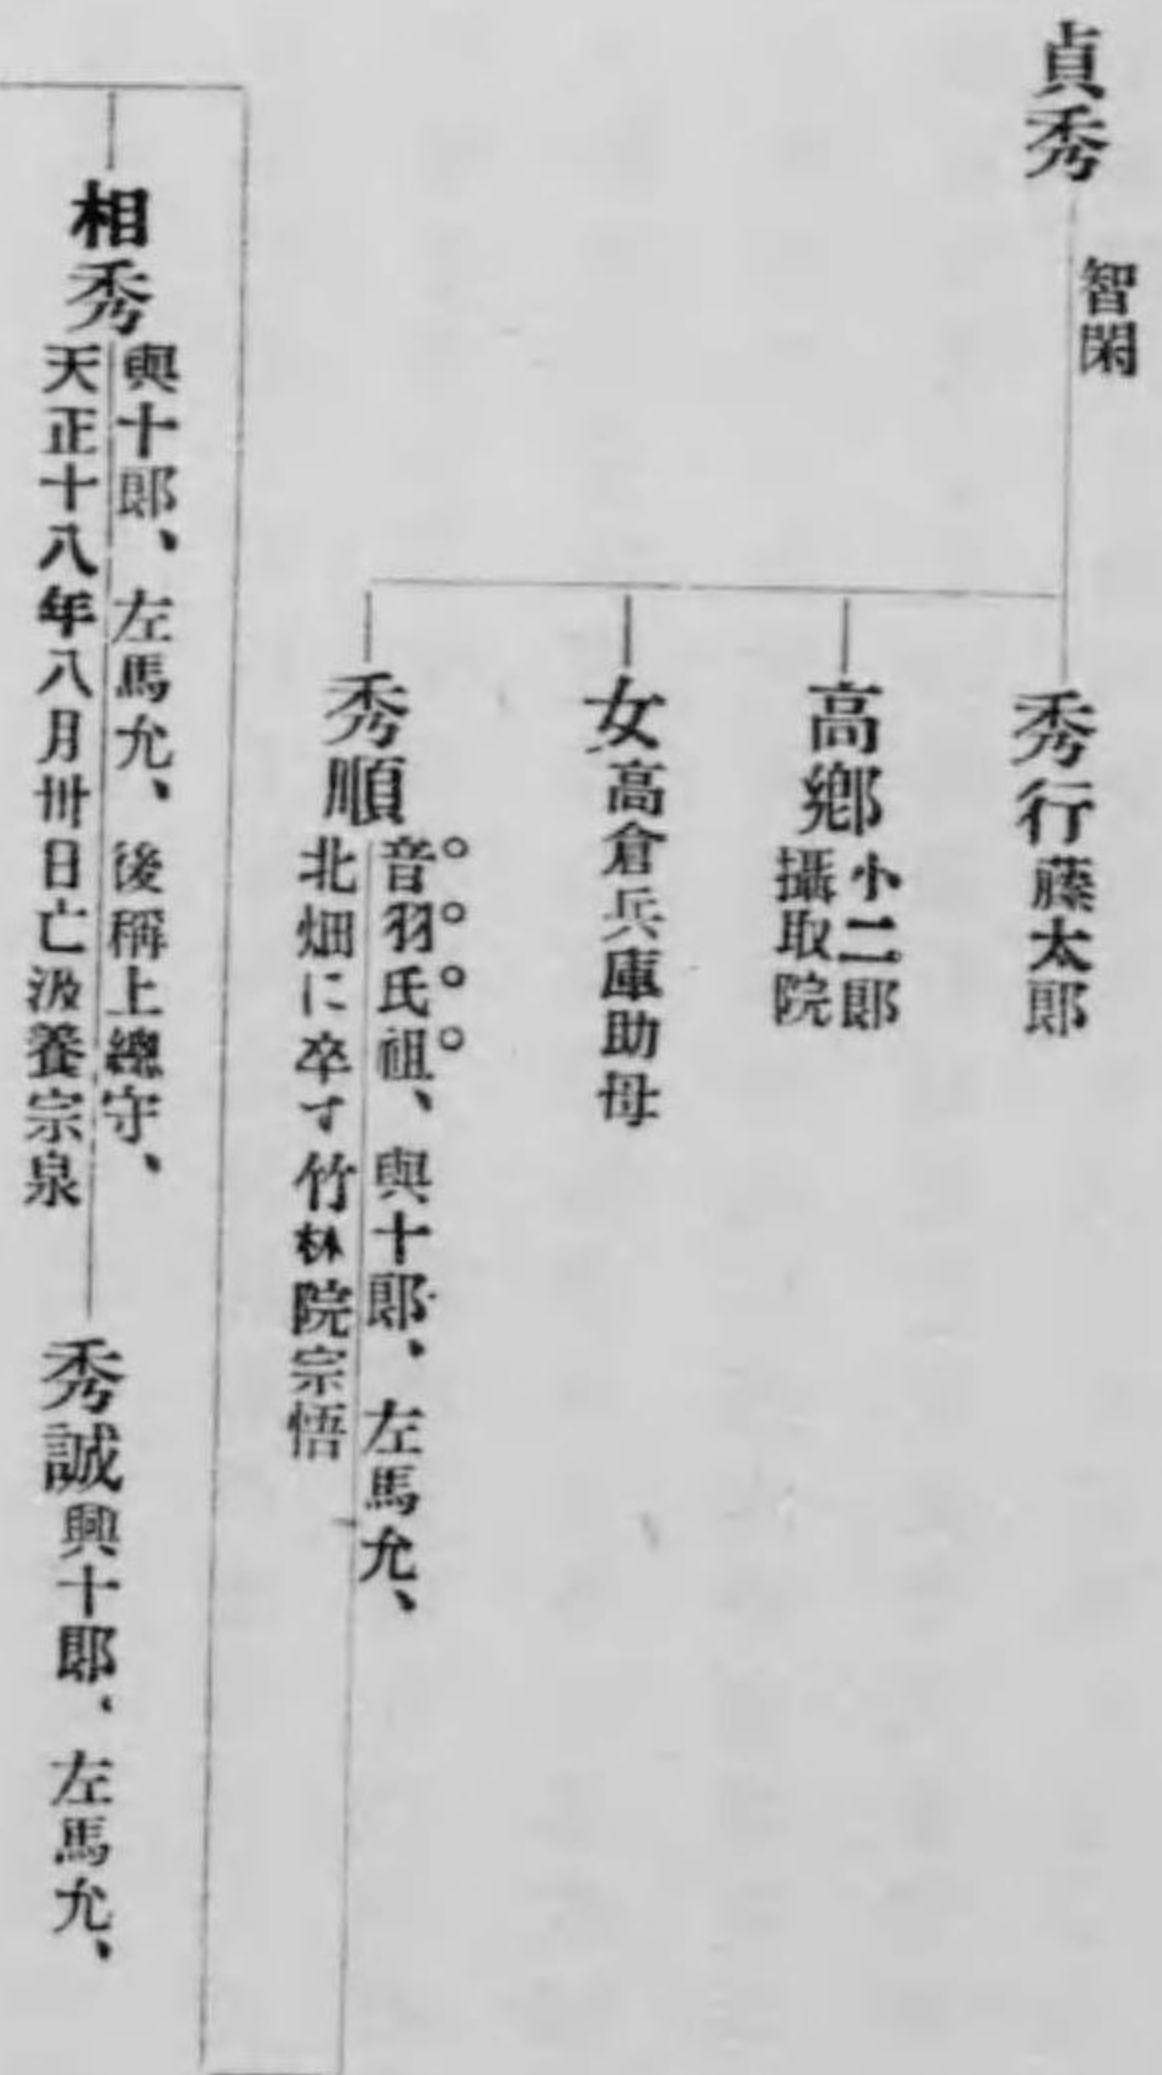 貞秀
智閑
秀行
藤太郎
高鄕
小二郎
攝取院
女
高倉兵庫助母
秀順
音羽氏祖、與十郎、左馬允、
北畑に卒す竹林院宗悟
相秀
與十郎、左馬允、後稱上總守、
天正十八年八月卅日亡汲養宗泉
秀誠
興十郎、左馬允、